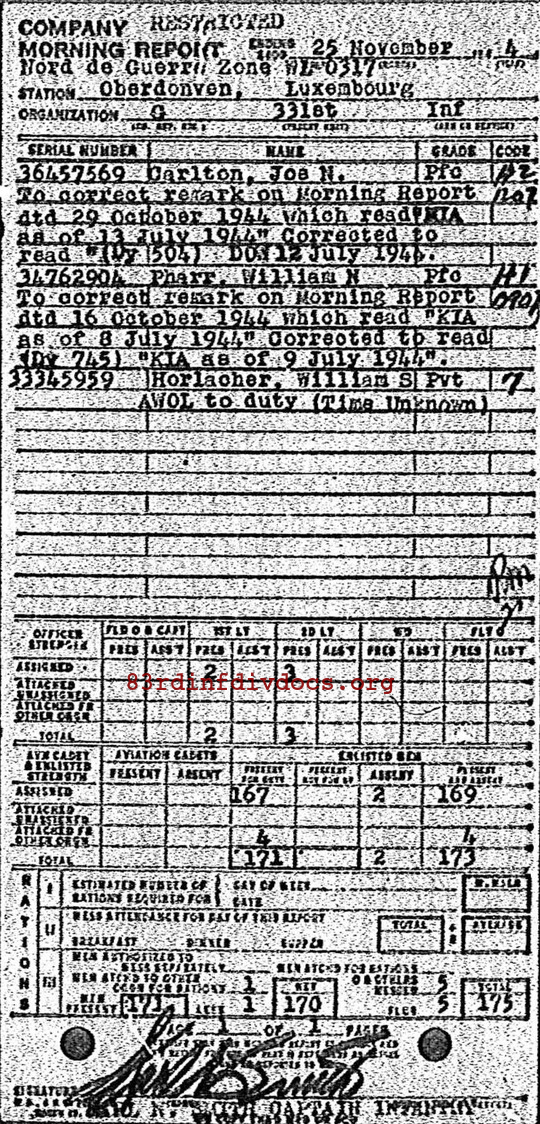 COMPANY RESTRICTED
MORNING REPORT ENDING 25 November 4
Nord de Guerre Zone WL-0317
STATION Oberdonven, Luxembourg
ORGANIZATION G 331st Inf
SERIAL NUMBER NAME GRADE CODE
36457569 Carlton, Joe N. Pfc
To correct remark on Morning Report
dtd 29 October 1944 which read "MIA
as of 13 July 1944" Corrected to
read "(Dy 504) DOW 12 July 1944.
34762904 Pharr, William N Pfc
To correct remark on Morning Report
dtd 16 October 1944 which read "KIA
as of 8 July 1944" Corrected to read
(Dy 745) "KIA as of 9 July 1944".
33345959 Horlacher, William S Pvt 7
AWOL to duty (Time Unknown)
OFFICER STRENGTH FLD O & CAPT 1ST LT 2D LT WO FLT O
PRES ABS'T PRES ABS'T PRES ABS'T PRES ABS'T PRES ABS'T
ASSIGNED 2 3
83rdinfdivdocs.org
ATTACHED UNASSIGNED
ATTACHED FR OTHER ORGN
TOTAL 2 3
AVN CADET & ENLISTED STRENGTH AVIATION CADETS ENLISTED MEN
PRESENT ABSENT PRESENT FOR DUTY PRESENT NOT FOR DY ABSENT PRESENT AND ABSENT
ASSIGNED 167 2 169
ATTACHED UNASSIGNED
ATTACHED FR OTHER ORGN 4 4
TOTAL 171 2 173
RATIONS
I ESTIMATED NUMBER OF RATIONS REQUIRED FOR DAY OF WEEK DATE
II MESS ATTENDANCE FOR DAY OF THIS REPORT TOTAL AVERAGE
BREAKFAST DINNER SUPPER
III MEN AUTHORIZED TO MESS SEPARATELY MEN ATCHD FOR RATIONS
MEN ATCHD TO OTHER ORGN FOR RATIONS 1 NET 5 TOTAL
MEN PRESENT 171 LESS 1 170 PLUS 5 175
PAGE 1 OF 1 PAGES
SIGNATURE
SMITH CAPTAIN INFANTRY